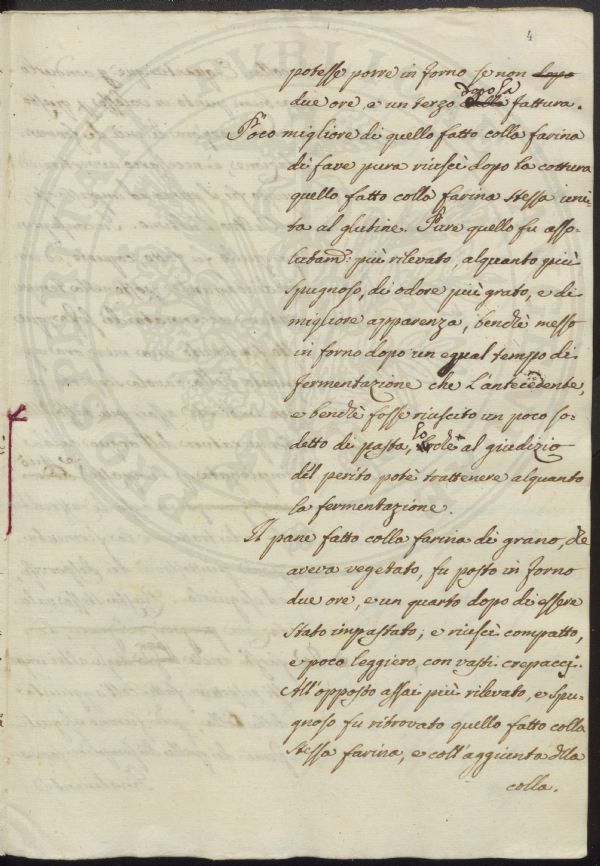 4
potesse porre in forno se non dopo
due ore, e un terzo dopo la fattura.
Poco migliore di quello fatto colla farina
di fave pura riuscì dopo la cottura
quello fatto colla farina stessa uni-
ta al glutine. Pure quello fu asso-
lutam: più rilevato, alquanto più
spugnoso, di odore più grato, e di
migliore apparenza, benchè messo
in forno dopo un egual tempo di
fermentazione che l'antecedente,
e benchè fosse riuscito un poco so-
detto di pasta, lo che al giudizio
del perito potè trattenere alquanto
la fermentazione.
Il pane fatto colla farina di grano, che
aveva vegetato, fu posto in forno
due ore, e un quarto dopo di essere
stato impastato; e riuscì compatto,
e poco leggiero, con vasti crepacci.
All'opposto assai più rilevato, e spu-
gnoso fu ritrovato quello fatto colla
stessa farina, e coll'aggiunta della
colla.